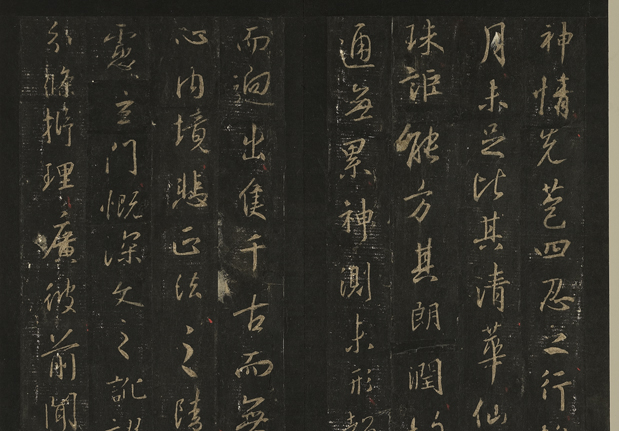 神情先苞四忍之行
月未足比其清華仙
珠詎能方其朗潤
通無累神測未形
而迥出隻千古而無
心內境悲正法之陵
慮玄門慨深文之訛
分條析理廣彼前聞